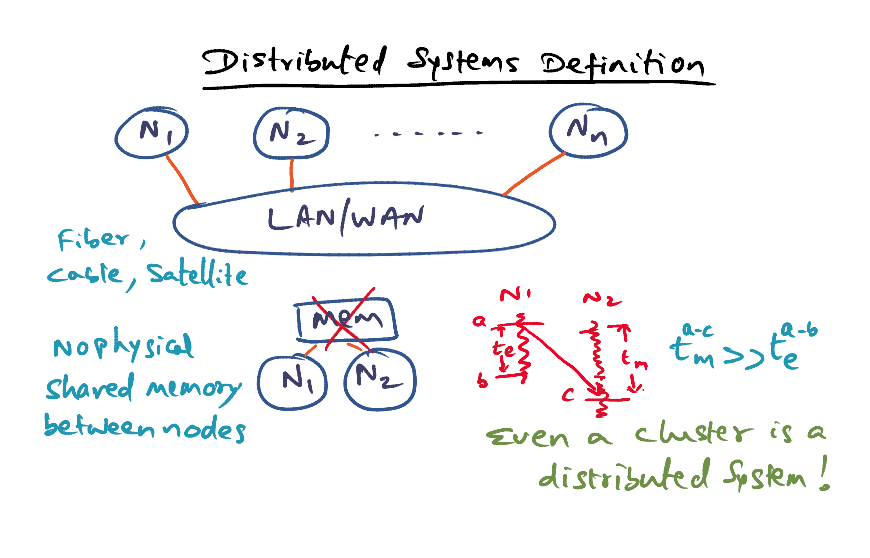 Distributed Systems Definition
N1 N2 ....... Nn
LAN/WAN
Fiber,
Cable, Satellite
Mem
N1 N2
No physical
shared memory
between nodes
N1 N2
a
te
tm
b
c
tm a-c >> te a-b
Even a cluster is a
distributed system!